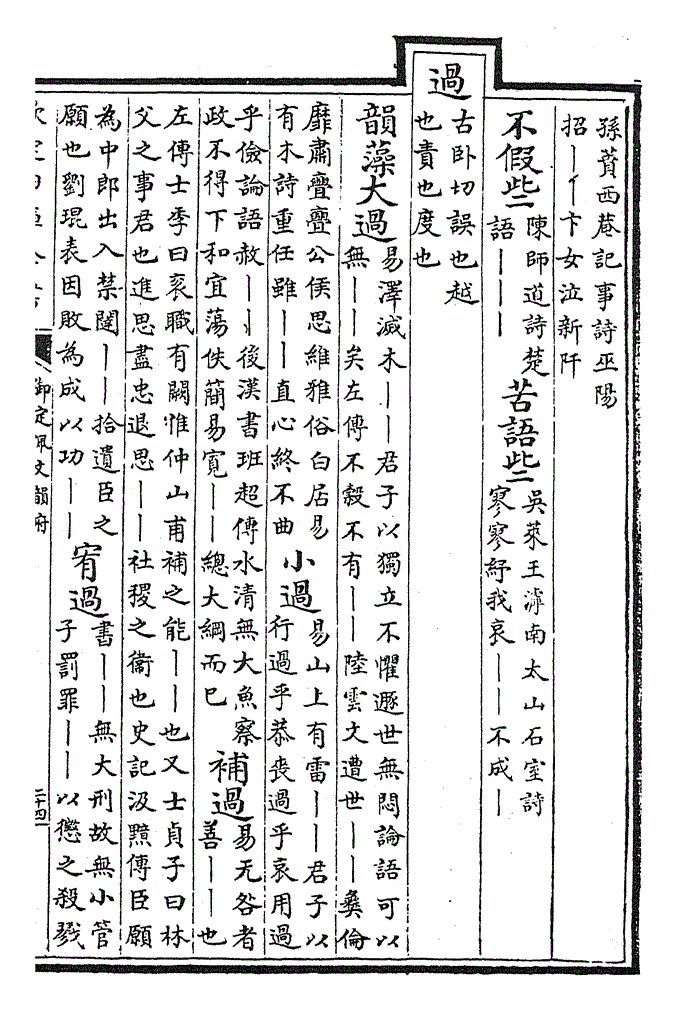 孫蕡西菴記事詩巫陽
招丨丨卞女泣新阡
不假些
陳師道詩楚
語丨丨丨
苦語些
吳萊王滹南太山石室詩
寥寥紓我哀丨丨不成丨
過
古卧切誤也越
也責也度也
韻藻大過
易澤滅木丨丨君子以獨立不懼遯世無悶論語可以
無丨丨矣左傳不穀不有丨丨陸雲文遭世丨丨彝倫
靡肅亹亹公侯思維雅俗白居易
有木詩重任雖丨丨直心終不曲
小過
易山上有雷丨丨君子以
行過乎恭喪過乎哀用過
乎儉論語赦丨丨後漢書班超傳水清無大魚察
政不得下和宜蕩佚簡易寬丨丨總大綱而已
補過
易无咎者
善丨丨也
左傳士季曰衮職有闕惟仲山甫補之能丨丨也又士貞子曰林
父之事君也進思盡忠退思丨丨社稷之衛也史記汲黯傳臣願
為中郎出入禁闥丨丨拾遺臣之
願也劉琨表因敗為成以功丨丨
宥過
書丨丨無大刑故無小管
子罰罪丨丨以懲之殺戮
御定佩文韻府
二十四